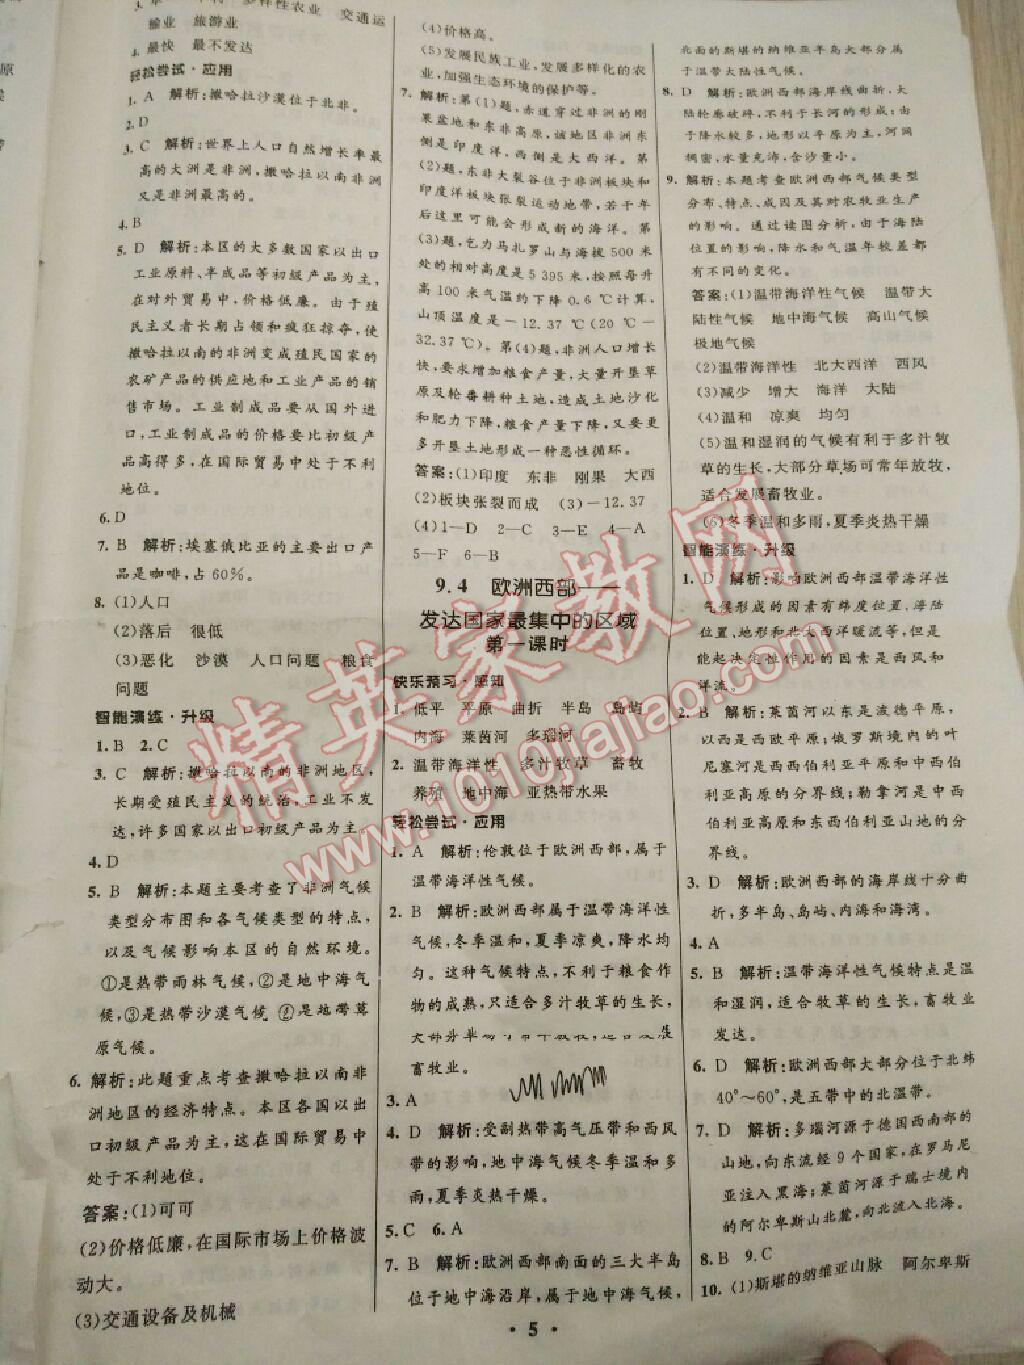 多样性农业 交通运
输业 旅游业
4. 最快 最不发达
轻松尝试·应用
1. A 解析:撒哈拉沙漠位于北非。
2. D
3. C 解析:世界上人口自然增长率最
高的大洲是非洲,撒哈拉以南非洲
又是非洲最高的。
4. B
5. D 解析:本区的大多数国家以出口
工业原料、半成品等初级产品为主,
在对外贸易中,价格低廉。由于殖
民主义者长期占领和疯狂掠夺,使
撒哈拉以南的非洲变成殖民国家的
农矿产品的供应地和工业产品的销
售市场。工业制成品要从国外进
口,工业制成品的价格要比初级产
品高得多,在国际贸易中处于不利
地位。
6. D
7. B 解析:埃塞俄比亚的主要出口产
品是咖啡,占60%。
8. (1)人口
(2)落后 很低
(3)恶化 沙漠 人口问题 粮食
问题
智能演练·升级
1. B 2. C
3. C 解析:撒哈拉以南的非洲地区,
长期受殖民主义的统治,工业不发
达,许多国家以出口初级产品为主。
4. D
5. B 解析:本题主要考查了非洲气候
类型分布图和各气候类型的特点,
以及气候影响本区的自然环境。
①是热带雨林气候,②是地中海气
候,③是热带沙漠气候
原气候。
6. 解析:此题重点考查撒哈拉以南非
洲地区的经济特点。本区各国以出
口初级产品为主,这在国际贸易中
处于不利地位。
答案:(1)可可
(2)价格低廉,在国际市场上价格波
动大。
(3)交通设备及机械
(4)价格高。
(5)发展民族工业,发展多样化的农
业,加强生态环境的保护等。
7. 解析:第(1)题,赤道穿过非洲的刚
果盆地和东非高原,该地区非洲东
侧是印度洋,西侧是大西洋。第
(2)题,东非大裂谷位于非洲板块和
印度洋板块张裂运动地带,若干年
后这里可能会形成新的海洋。第
(3)题,乞力马扎罗山与海拔500米
处的相对高度是5 395米,按照每升
高100米气温约下降0.6℃计算,
山顶温度是-12.37℃(20℃-
32.37℃)。第(4)题,非洲人口增长
快,要求增加粮食产量,大量开垦草
原及轮番耕种土地,造成土地沙化
和肥力下降,粮食产量下降,又要更
多开垦土地形成一种恶性循环。
答案:(1)印度 东非 刚果 大西
(2)板块张裂而成 (3)-12.37
(4)1—D 2—C 3—E 4—A
5—F 6—B
9.4 欧洲西部——
发达国家最集中的区域
第一课时
快乐预习·感知
1. 低平 平原 曲折 半岛 岛屿
内海 莱茵河 多瑙河
2. 温带海洋性 多汁牧草 畜牧
养殖 地中海 亚热带水果
轻松尝试·应用
1. A 解析:伦敦位于欧洲西部,属于
温带海洋性气候。
2. B 解析:欧洲西部属于温带海洋性
气候,冬季温和,夏季凉爽,降水均
匀。这种气候特点,不利于粮食作
物的成熟,只适合多汁牧草的生长,
大部分草场
畜牧业。
3. A
4. D 解析:受副热带高气压带和西风
带的影响,地中海气候冬季温和多
雨,夏季炎热干燥。
5. C 6. A
7. B 解析:欧洲西部南面的三大半岛
位于地中海沿岸,属于地中海气候,
北面的斯堪的纳维亚半岛大部分属
于温带大陆性气候。
8. D 解析:欧洲西部海岸线曲折,大
陆轮廓破碎,不利于长河的形成;由
于降水较多,地形以平原为主,河网
稠密,水量充沛,含沙量小。
9. 解析:本题考查欧洲西部气候类型
分布、特点、成因及其对农牧业生产
的影响。通过读图分析,由于海陆
位置的影响,降水和气温年较差都
有不同的变化。
答案:(1)温带海洋性气候 温带大
陆性气候 地中海气候 高山气候
极地气候
(2)温带海洋性 北大西洋 西风
(3)减少 增大 海洋 大陆
(4)温和 凉爽 均匀
(5)温和湿润的气候有利于多汁牧
草的生长,大部分草场可常年放牧,
适合发展畜牧业。
(6)冬季温和多雨,夏季炎热干燥
智能演练·升级
1. D 解析:影响欧洲西部温带海洋性
气候的因素有纬度位置、海陆
位置、地形和北大西洋暖流等,但是
能起决定性作用的因素是西风和
洋流。
2. B 解析:莱茵河以东是波德平原,
以西是西欧平原;俄罗斯境内的叶
尼塞河是西西伯利亚平原和中西伯
利亚高原的分界线;勒拿河是中西
伯利亚高原和东西伯利亚山地的分
界线。
3. D 解析:欧洲西部的海岸线十分曲
折,多半岛、岛屿、内海和海湾。
4. A
5. B 解析:温带海洋性气候特点是温
和湿润,适合牧草的生长,畜牧业
发达。
6. D 解析:欧洲西部大部分位于北纬
40°~60°,是五带中的北温带。
7. D 解析:多瑙河源于德国西南部的
山地,向东流经9个国家,在罗马尼
亚注入黑海;莱茵河源于瑞士境内
的阿尔卑斯山北麓,向北流入北海。
8. B 9. C
10. (1)斯堪的纳维亚山脉 阿尔卑斯
· 5 ·
精英家教网
www.1010jiajiao.com